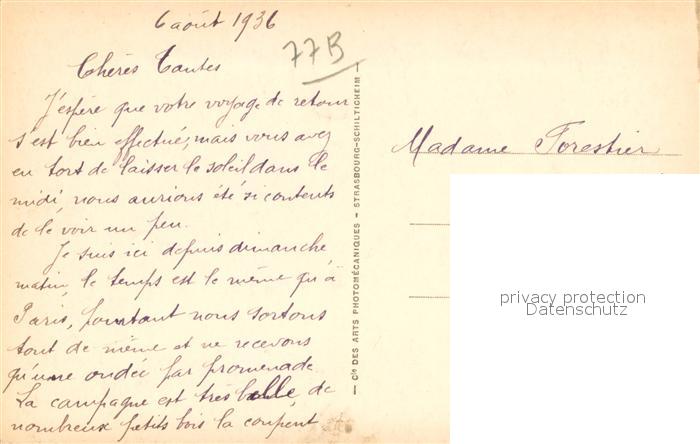 6 août 1936
77B
Chères Tantes
J'espère que votre voyage de retour
s'est bien effectué, mais vous avez
eu tort de laisser le soleil dans le
midi, nous aurions été si contents
de le voir un peu.
Je suis ici depuis dimanche
matin, le temps est le même qu'à
Paris, pourtant nous sortons
tout de même et ne recevons
qu'une ondée par promenade
La campagne est très belle, de
nombreux petits bois la coupent
— Cie DES ARTS PHOTOMÉCANIQUES — STRASBOURG-SCHILTIGHEIM —
Madame Forestier
privacy protection
Datenschutz